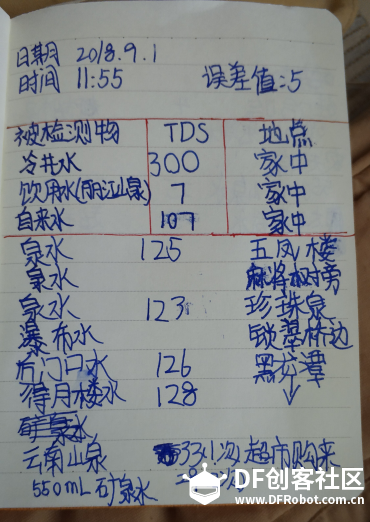 日期 2018.9.1
时间 11:55 误差值:5
被检测物 TDS 地点
冷井水 300 家中
饮用水(丽江山泉) 7 家中
自来水 107 家中
泉水 125 五凤楼
泉水 旁
泉水 123 珍珠泉
瀑布水 锁翠桥边
后门口水 126 黑龙潭
得月楼水 128 ↓
泉水
云南山泉 超市购来
550mL矿泉水
DF创客社区
www.DFRobot.com.cn